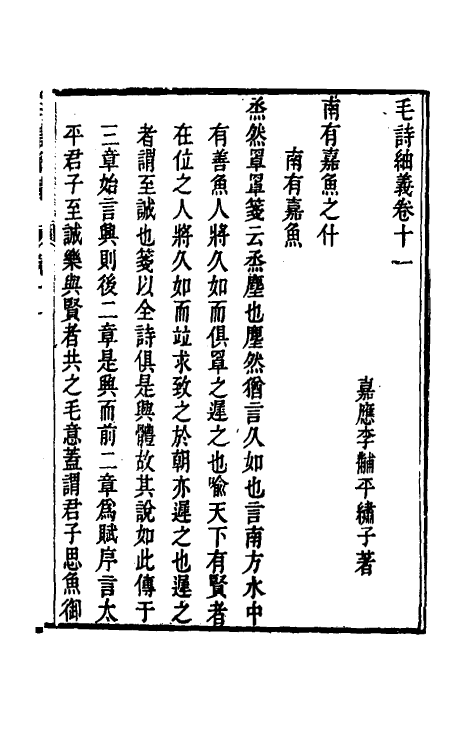 毛詩紬義卷十一
嘉應李黼平繡子著
南有嘉魚之什
南有嘉魚
烝然罩罩箋云烝塵也塵然猶言久如也言南方水中
有善魚人將久如而俱罩之遲之也喻天下有賢者
在位之人將久如而竝求致之於朝亦遲之也遲之
者謂至誠也箋以全詩俱是興體故其說如此傳于
三章始言興則後二章是興而前二章爲賦序言太
平君子至誠樂與賢者共之毛意蓋謂君子思魚御